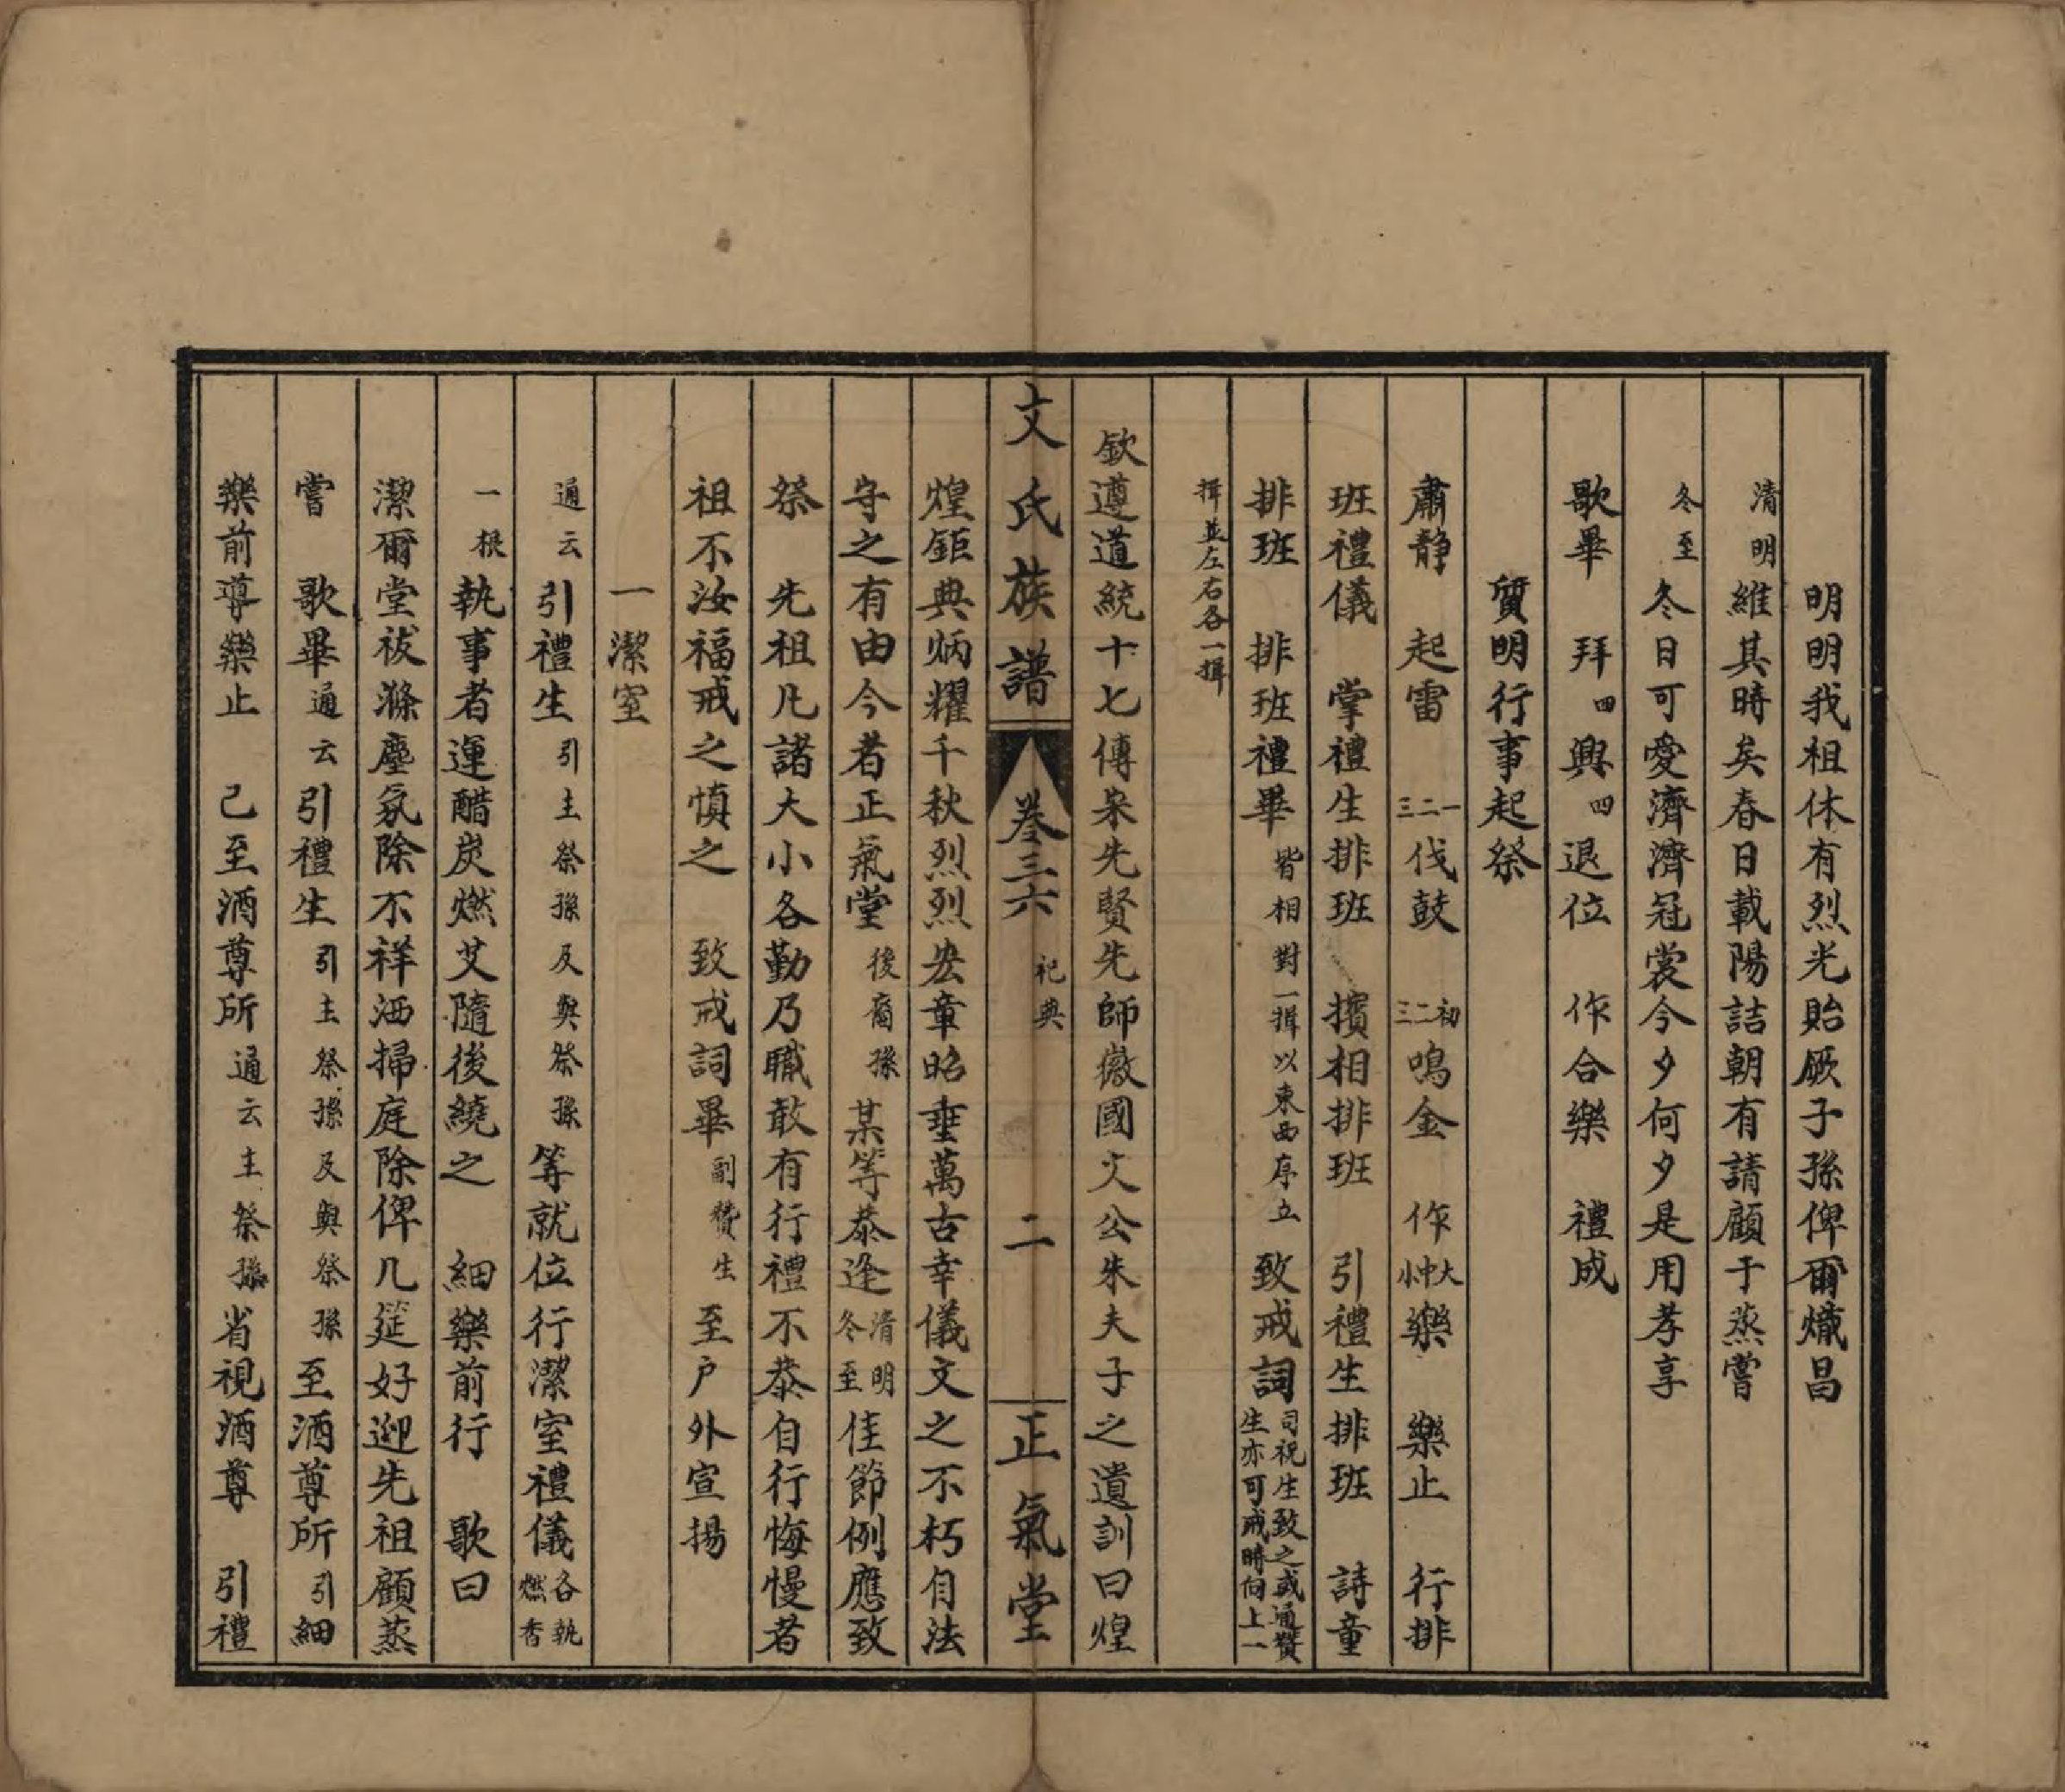 明明我祖休有烈光貽厥子孫俾爾熾昌
清明維其時矣春日載陽詰朝有請顧于蒸嘗
冬至冬日可愛濟濟冠裳今夕何夕是用孝享
歌畢 拜四興四退位 作合樂 禮成
質明行事起祭
肅静 起雷 一二三伐鼓 初二三鳴金 作大中小樂 樂止 行排
班禮儀 掌禮生排班 擯相排班 引禮生排班 詩童
排班 排班禮畢皆相對一揖以東西序立 致戒詞司祝生致之或通贊生亦可戒時向上一
揖並左右各一揖
欽遵道統十七傳宋先賢先師徽國文公朱夫子之遺訓曰煌
文氏族譜 卷三六 祀典 二 正氣堂
煌鉅典炳耀千秋烈烈宏章昭垂萬古幸儀文之不朽自法
守之有由今者正氣堂後裔孫某等恭逢清明冬至佳節例應致
祭 先祖凡諸大小各勤乃職敢有行禮不恭自行悔慢者
祖不汝福戒之慎之 致戒詞畢副贊生至户外宣揚
一潔室
通云引禮生引主祭孫及與祭孫等就位行潔室禮儀各執燃香
一根執事者運醋炭燃艾隨後繞之 細樂前行 歌曰
潔爾堂祓滌塵氛除不祥洒掃庭除俾几筵好迎先祖顧蒸
嘗 歌畢通云引禮生引主祭孫及與祭孫至酒尊所引細
樂前導樂止 己至酒尊所通云主祭孫省視酒尊 引禮